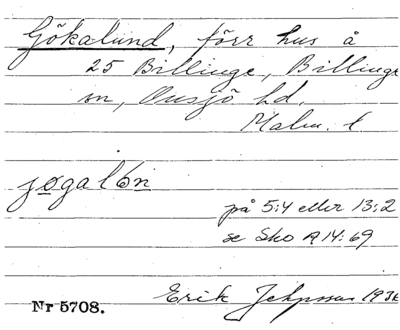 Gökalund, förr hus å
25 Billinge, Billinge
sn, Onsjö hd.
Malm. l
på 5:4 eller 13:2
se Sko A14:69
Erik 1936
Nr 5708.